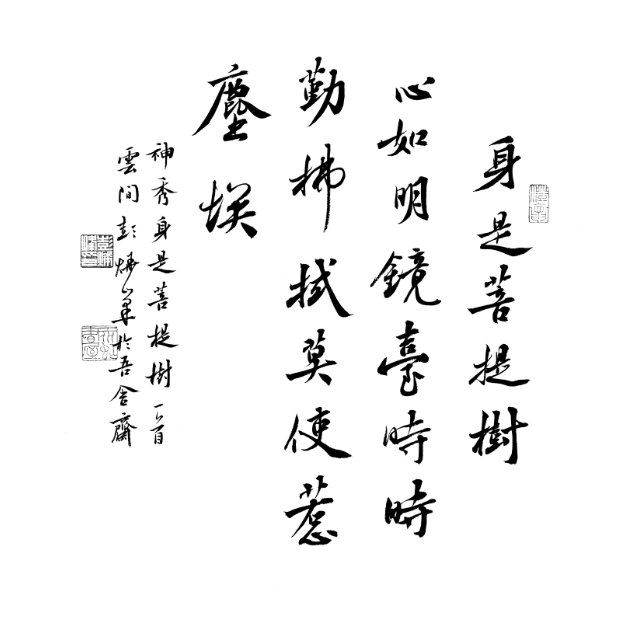 身是菩提樹
心如明鏡臺時時
勤拂拭莫使惹
塵埃
神秀身是菩提樹一首
雲间彭烯峯於吾舍齋